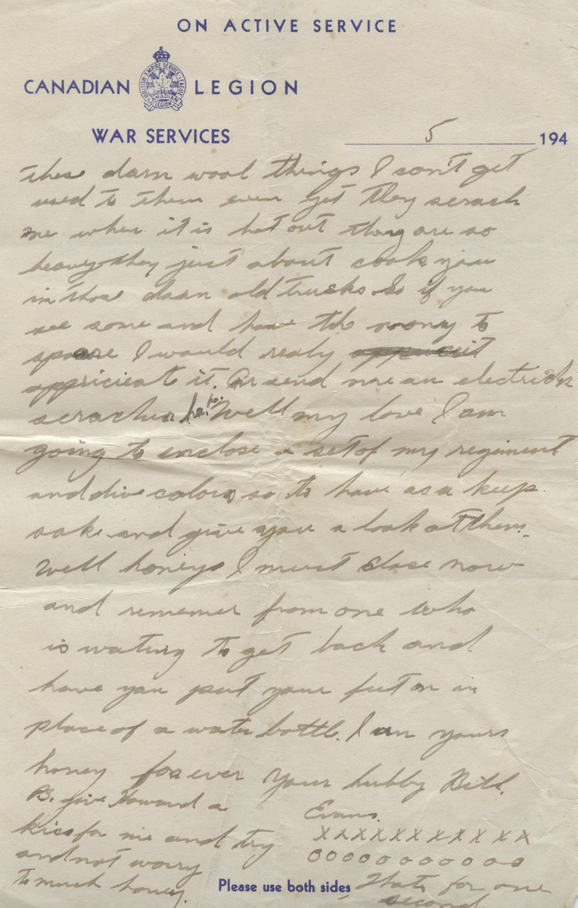 ON ACTIVE SERVICE
CANADIAN LEGION
WAR SERVICES
5 194
these darn wool things I don't get
used to them ever yet they scrach
me when it is hot out they are so
heavy they just about cook you
in those darn old trucks So if you
see some and have the money to
spare I would realy
appricieat it. Or send me an electrick
scracher ha. Well my love I am
going to enclose a set of my regiment
and div colors so to have as a keep
sake and give you a look at them.
Well honeys I must close now
and rememer from one who
is wating to get back and
have you put your feet on in
place of a water bottle. I am yours
honey for ever Your hubby Bill.
Evans.
xxxxxxxxxxx
ooooooooooo
PS. give Howard a
kiss for me and try
and not worry
to much honey.
Please use both sides
Thats for one
second